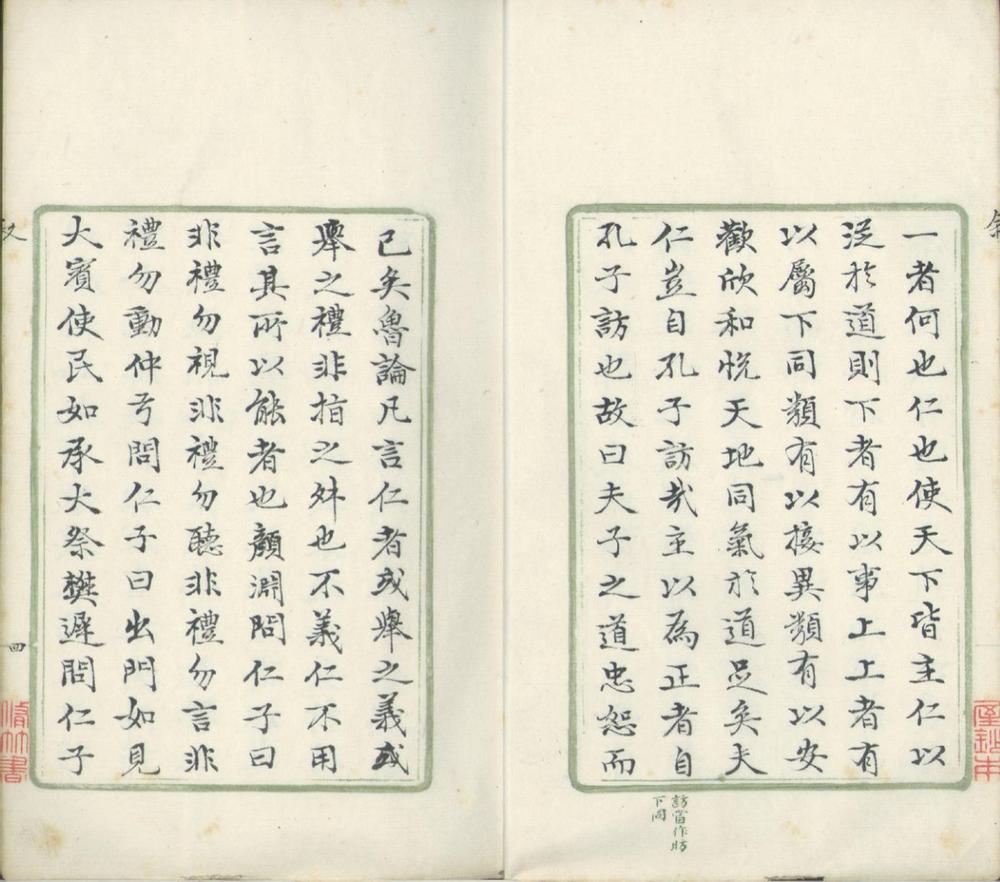 一者何也仁也使天下皆主仁以
泛於道則下者有以事上上者有
以屬下同類有以接異類有以安
歡欣和悅天地同氣於道足矣夫
仁豈自孔子訪哉主以為正者自
孔子訪也故曰夫子之道忠恕而
訪當作昉
下同
已矣魯論凡言仁者或舉之義或
舉之禮非指之外也不義仁不用
言其所以能者也顏淵問仁子曰
非禮勿視非禮勿聽非禮勿言非
禮勿動仲弓問仁子曰出門如見
大賓使民如承大祭樊遲問仁子
四